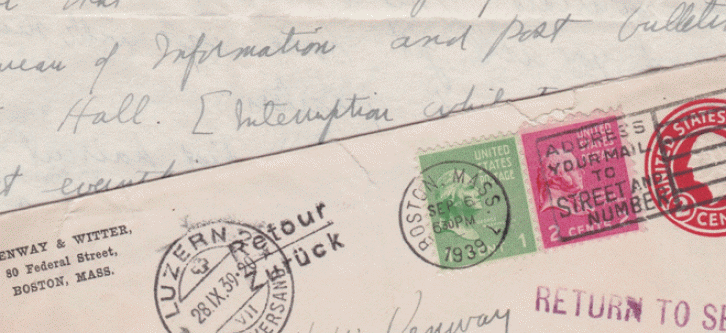 of Information and post bulletin
Hall. [Interruption
ENWAY & WITTER,
80 Federal Street,
BOSTON, MASS.
LUZERN 2
28.IX.39
VII
VERSAND
Retour
Zurück
BOSTON, MASS.
SEP 6
630 PM
1939
UNITED
STATES
POSTAGE
1
UNITED
STATES
2 CENTS
ADDRESS
YOUR MAIL
TO
STREET AND
NUMBER
UNITED STATES
CEN
RETURN TO SE